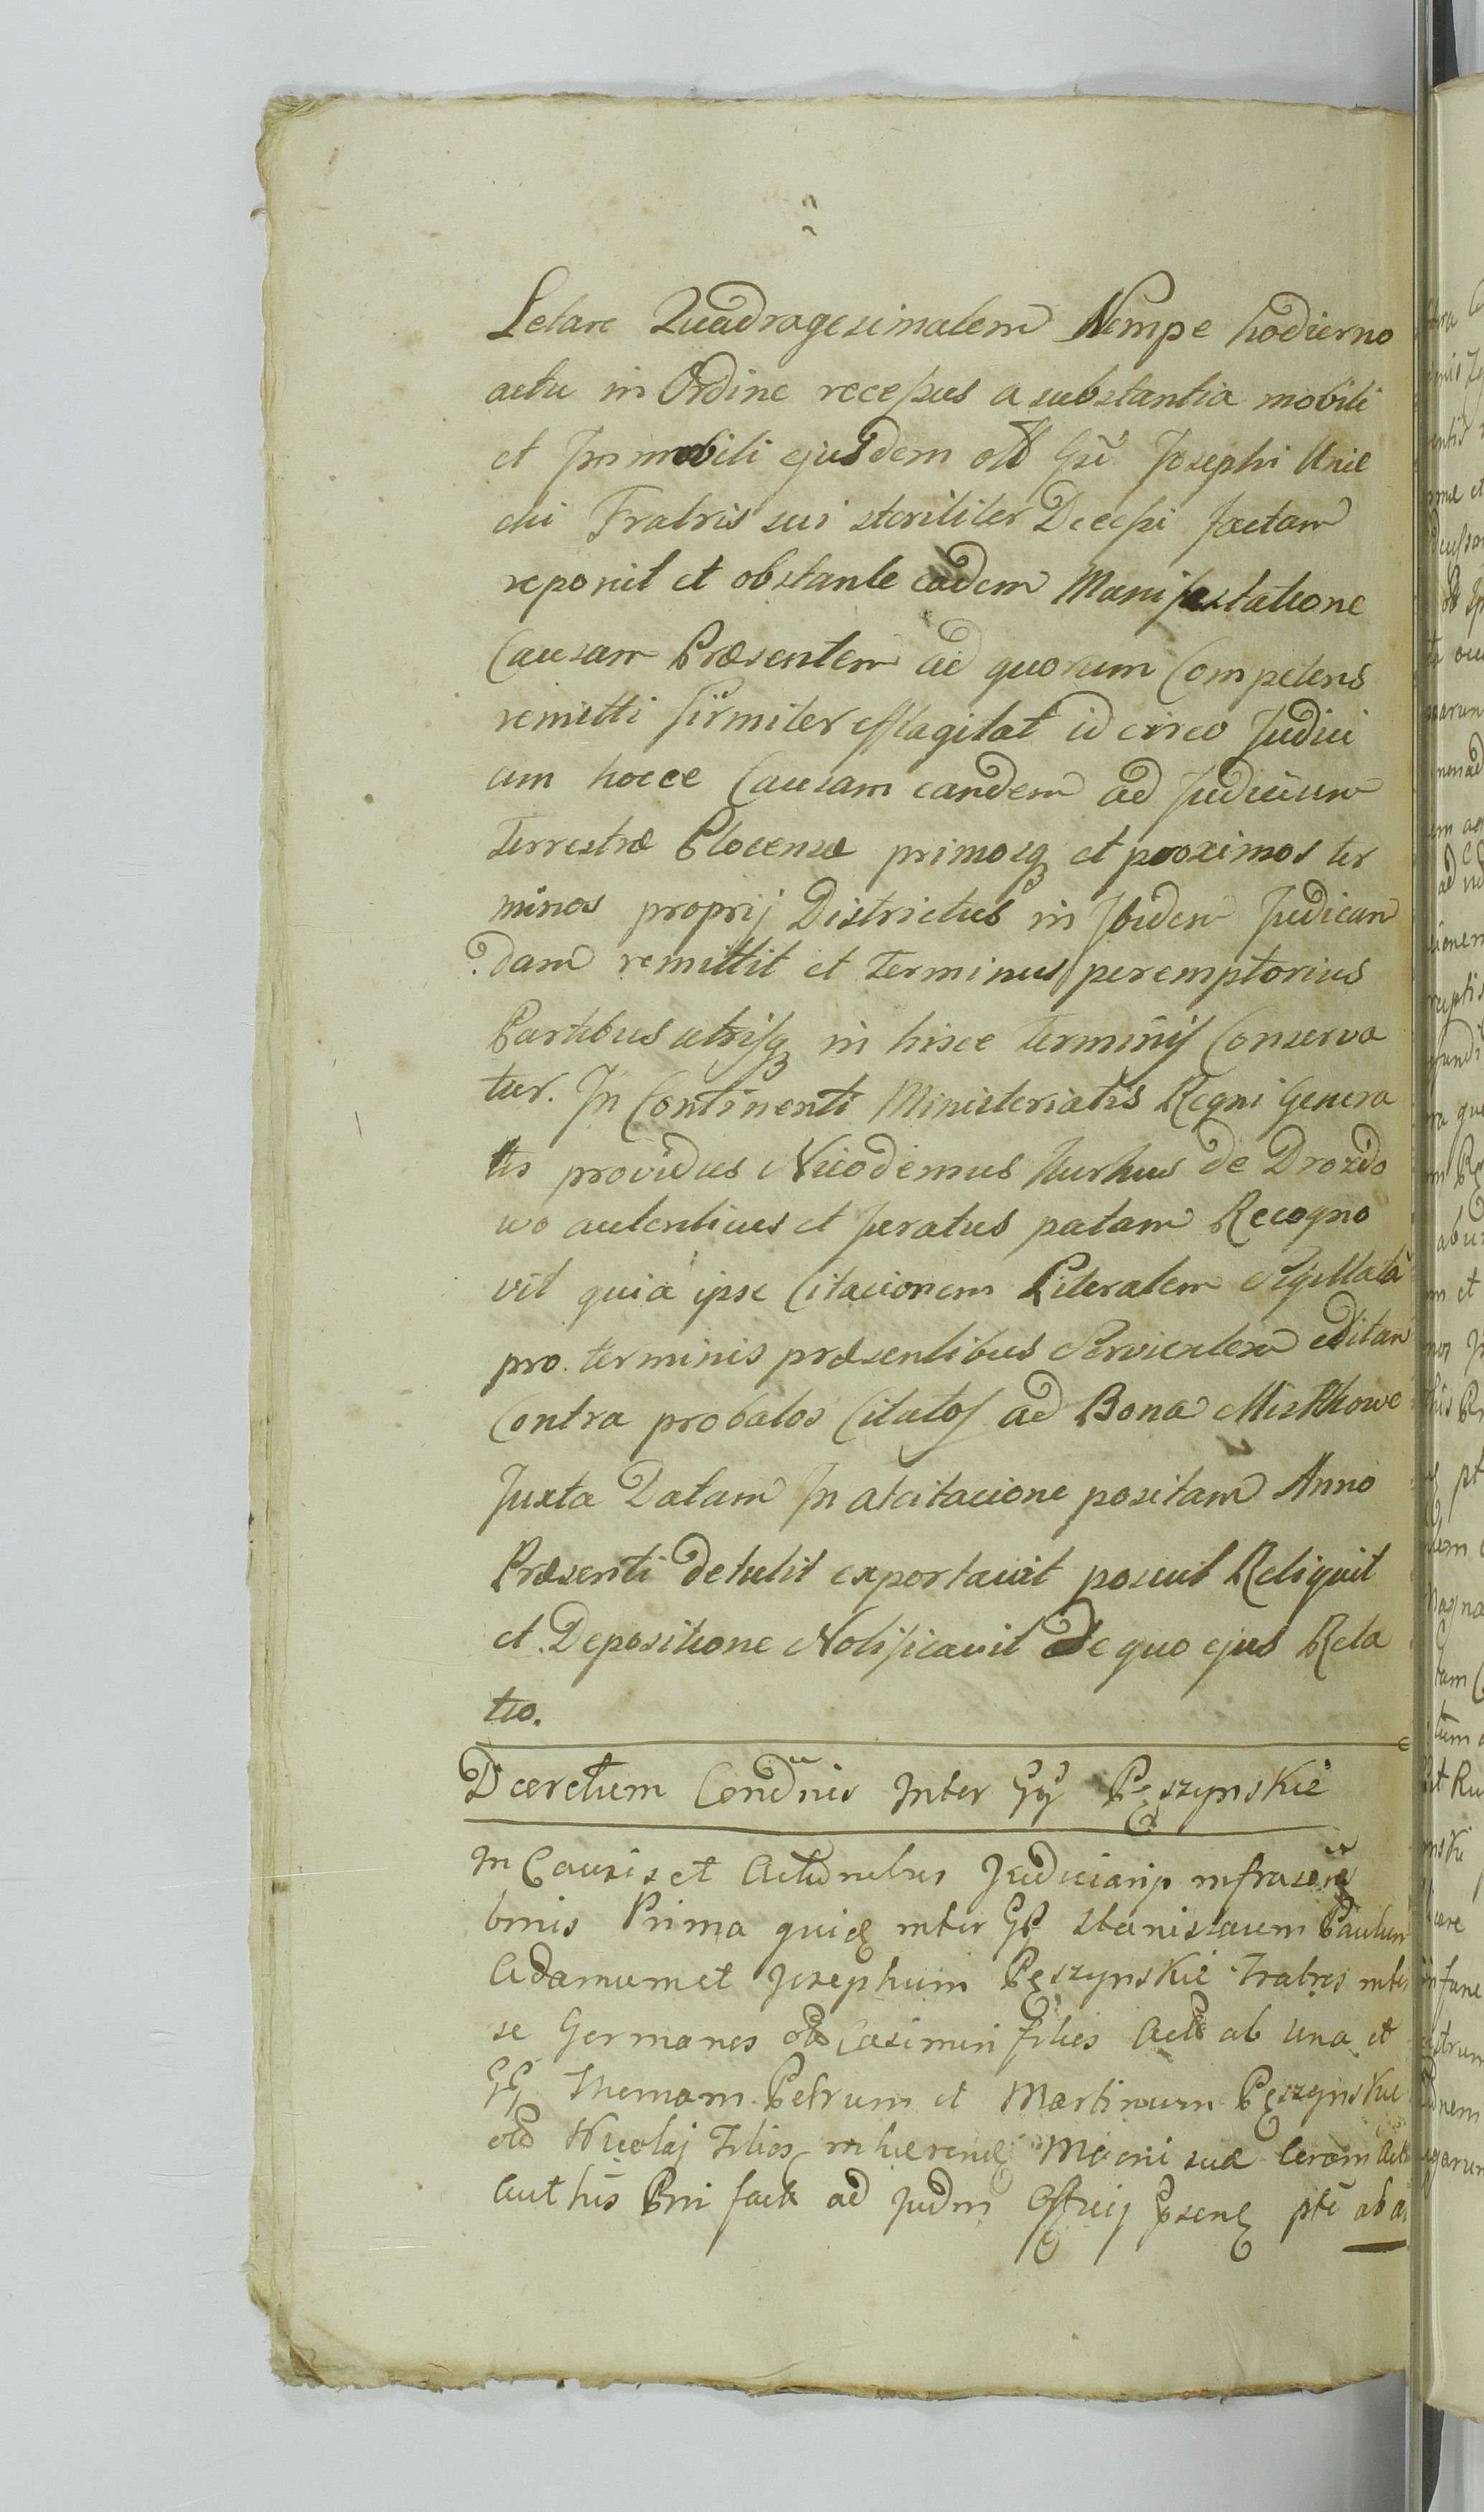 Letare Quadragesimalem Nempe hodierno
actu in Ordine recessus a substantia mobili
et Immobili ejusdem olb Gsi Josephi Unie
chi Fratris sui steriliter Decessi factam
reponit et obstante eadem Manifestatione
Causam Præsentem ad quorum Competens
remitti firmiter efflagitat id circo Judici
um hocce Causam eandem ad Judicium
Terrestræ Plocensæ primosq et proximos ter
minos proprij Districtus in Ibidem Judican
dam remittit et Terminus peremptorius
Partibus utrisq in hisce Terminis Conserva
tur. In Continenti Ministerialis Regni Genera
lis providus Nicodemus de Drozdo
wo autenticus et Juratus palam Recogno
vit quia ipse Citacionem Literalem Sigillatã
pro terminis præsentibus Servientem editam
Contra probatos Citatos ad Bona Mistkowe
Juxta Datam In Citacione positam Anno
Præsenti detulit exportavit posuit Reliquit
et Depositione Notificavit De quo ejus Rela
tio.
Decretum Condnis Inter GG Pęszynskie
In Causis et Actionibus Judiciarijs infrascrip
binis Prima quidę inter GG Stanislaum Paulum
Adamum et Josephum Pęszynskie Fratres inter
se Germanos olb Casimiri filios Act ab una et
GG Thomam Petrum et Martinum Pęszynskie
olb Nicolaj Filios inhærendę Mõni suæ Coram Act
Auth hũs Pni fact ad Judm Officij pte ab a